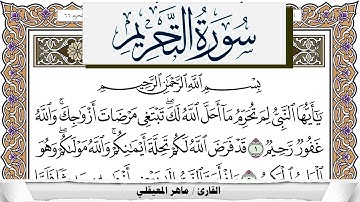 سورة التحريم
بِسْمِ اللَّهِ الرَّحْمَٰنِ الرَّحِيمِ
يَا أَيُّهَا النَّبِيُّ لِمَ تُحَرِّمُ مَا أَحَلَّ اللَّهُ لَكَ تَبْتَغِي مَرْضَاتَ أَزْوَاجِكَ وَاللَّهُ
غَفُورٌ رَّحِيمٌ ١ قَدْ فَرَضَ اللَّهُ لَكُمْ تَحِلَّةَ أَيْمَانِكُمْ وَاللَّهُ مَوْلَاكُمْ وَهُوَ
القارئ / ماهر المعيقلي